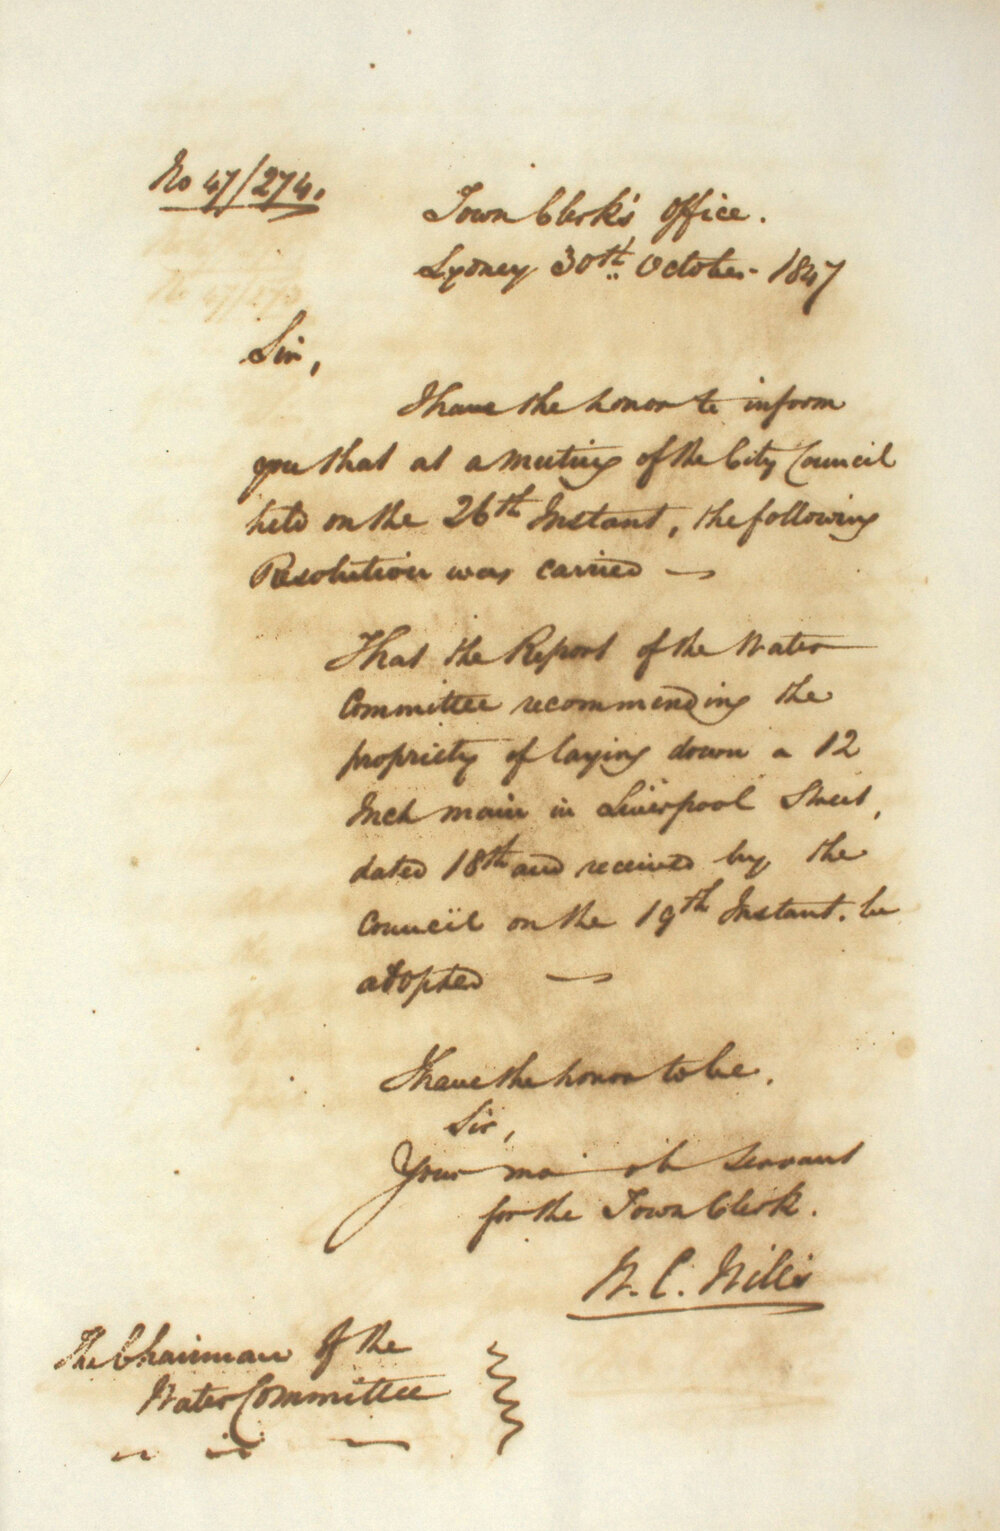 No 47/274.
Town Clerk's Office.
Sydney 30th October 1847
Sir,
I have the honor to inform
you that at a meeting of the City Council
held on the 26th Instant, the following
Resolution was carried —
That the Report of the Water
Committee recommending the
propriety of laying down a 12
Inch main in Liverpool Street,
dated 18th and received by the
Council on the 19th Instant. be
adopted —
I have the honor to be.
Sir,
Your mo ob Servant
for the Town Clerk.
W. C. Wills
The Chairman Of the
Water Committee